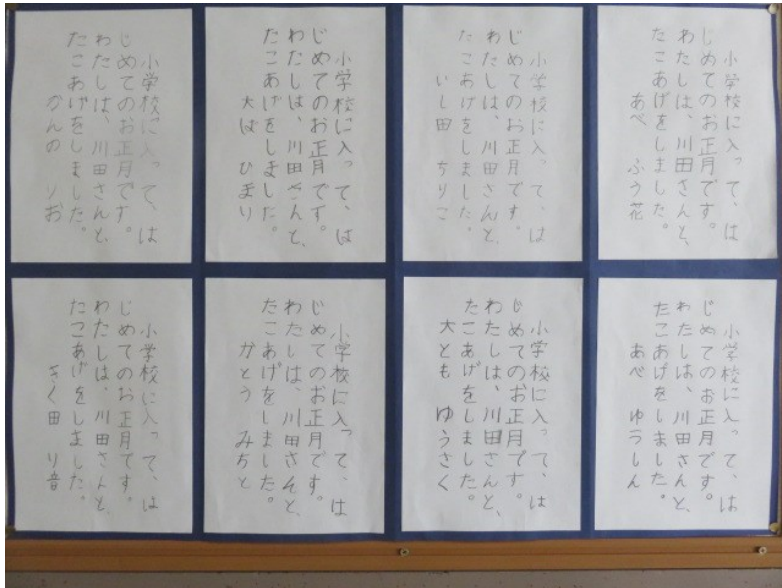 小学校に入って、は
じめてのお正月です。
わたしは、川田さんと、
たこあげをしました。
あべ ふう花
小学校に入って、は
じめてのお正月です。
わたしは、川田さんと、
たこあげをしました。
いし田 ちりこ
小学校に入って、は
じめてのお正月です。
わたしは、川田さんと、
たこあげをしました。
大は ひまり
小学校に入って、は
じめてのお正月です。
わたしは、川田さんと、
たこあげをしました。
かんの りお
小学校に入って、は
じめてのお正月です。
わたしは、川田さんと、
たこあげをしました。
あべ ゆうしん
小学校に入って、は
じめてのお正月です。
わたしは、川田さんと、
たこあげをしました。
大とも ゆうさく
小学校に入って、は
じめてのお正月です。
わたしは、川田さんと、
たこあげをしました。
かとう みちと
小学校に入って、は
じめてのお正月です。
わたしは、川田さんと、
たこあげをしました。
きく田 り音